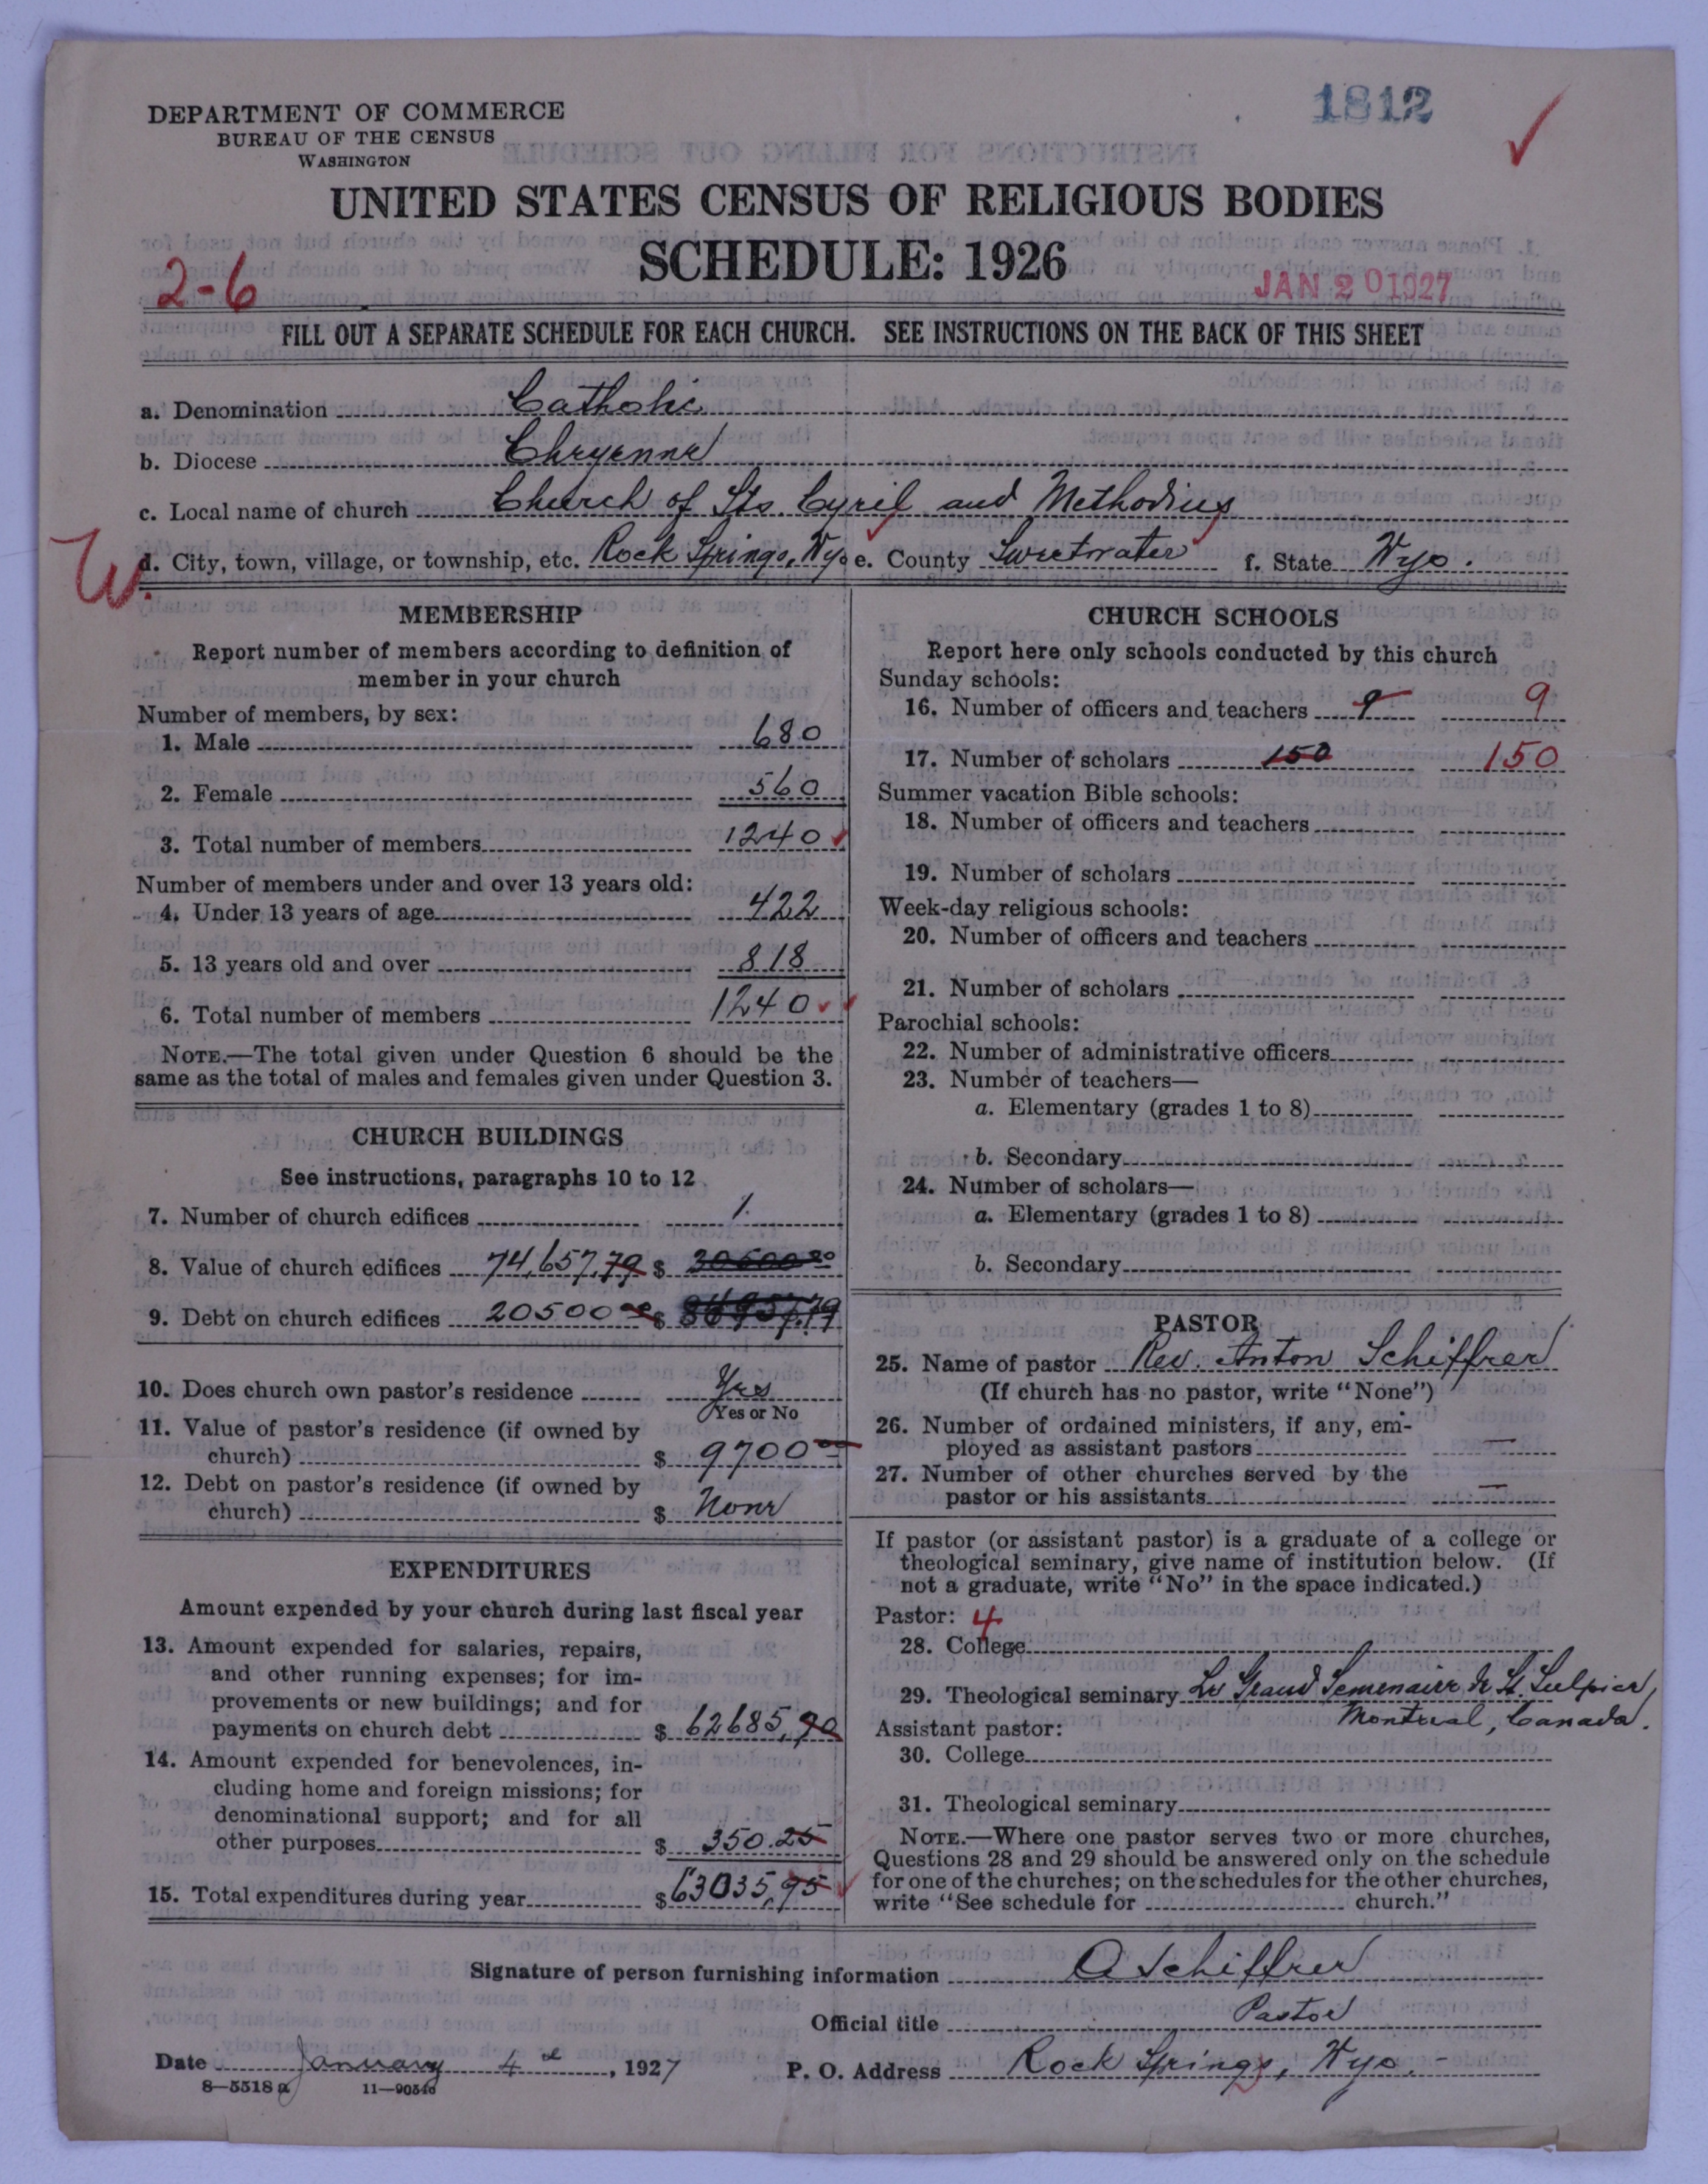 1812
DEPARTMENT OF COMMERCE
BUREAU OF THE CENSUS
WASHINGTON
UNITED STATES CENSUS OF RELIGIOUS BODIES
SCHEDULE: 1926
2-6
JAN 20 1927
FILL OUT A SEPARATE SCHEDULE FOR EACH CHURCH. SEE INSTRUCTIONS ON THE BACK OF THIS SHEET
a. Denomination Catholic
b. Diocese Cheyenne
c. Local name of church Church of Sts. Cyril and Methodius
W.
d. City, town, village, or township, etc. Rock Springs, Wyo e. County Sweetwater f. State Wyo.
MEMBERSHIP
Report number of members according to definition of
member in your church
Number of members, by sex:
1. Male 680
2. Female 560
3. Total number of members 1240
Number of members under and over 13 years old:
4. Under 13 years of age 422
5. 13 years old and over 818
6. Total number of members 1240
NOTE.—The total given under Question 6 should be the
same as the total of males and females given under Question 3.
CHURCH BUILDINGS
See instructions, paragraphs 10 to 12
7. Number of church edifices 1.
8. Value of church edifices 74,657.79 $
9. Debt on church edifices 20500 00 $
10. Does church own pastor's residence Yes
Yes or No
11. Value of pastor's residence (if owned by
church) $ 9700 00
12. Debt on pastor's residence (if owned by
church) $ None
EXPENDITURES
Amount expended by your church during last fiscal year
13. Amount expended for salaries, repairs,
and other running expenses; for im-
provements or new buildings; and for
payments on church debt $ 62685.70
14. Amount expended for benevolences, in-
cluding home and foreign missions; for
denominational support; and for all
other purposes $ 350.25
15. Total expenditures during year $ 63035.95
CHURCH SCHOOLS
Report here only schools conducted by this church
Sunday schools:
16. Number of officers and teachers 9 9
17. Number of scholars 150 150
Summer vacation Bible schools:
18. Number of officers and teachers
19. Number of scholars
Week-day religious schools:
20. Number of officers and teachers
21. Number of scholars
Parochial schools:
22. Number of administrative officers
23. Number of teachers—
a. Elementary (grades 1 to 8)
b. Secondary
24. Number of scholars—
a. Elementary (grades 1 to 8)
b. Secondary
PASTOR
25. Name of pastor Rev. Anton Schiffrer
(If church has no pastor, write "None")
26. Number of ordained ministers, if any, em-
ployed as assistant pastors —
27. Number of other churches served by the
pastor or his assistants —
If pastor (or assistant pastor) is a graduate of a college or
theological seminary, give name of institution below. (If
not a graduate, write "No" in the space indicated.)
Pastor: 4
28. College
29. Theological seminary Le Grand Semenaire de St. Sulpice,
Montreal, Canada.
Assistant pastor:
30. College
31. Theological seminary
NOTE.—Where one pastor serves two or more churches,
Questions 28 and 29 should be answered only on the schedule
for one of the churches; on the schedules for the other churches,
write "See schedule for church."
Signature of person furnishing information A Schiffrer
Official title Pastor
Date January 4, 1927 P. O. Address Rock Springs, Wyo.
8—5518a 11—9054b